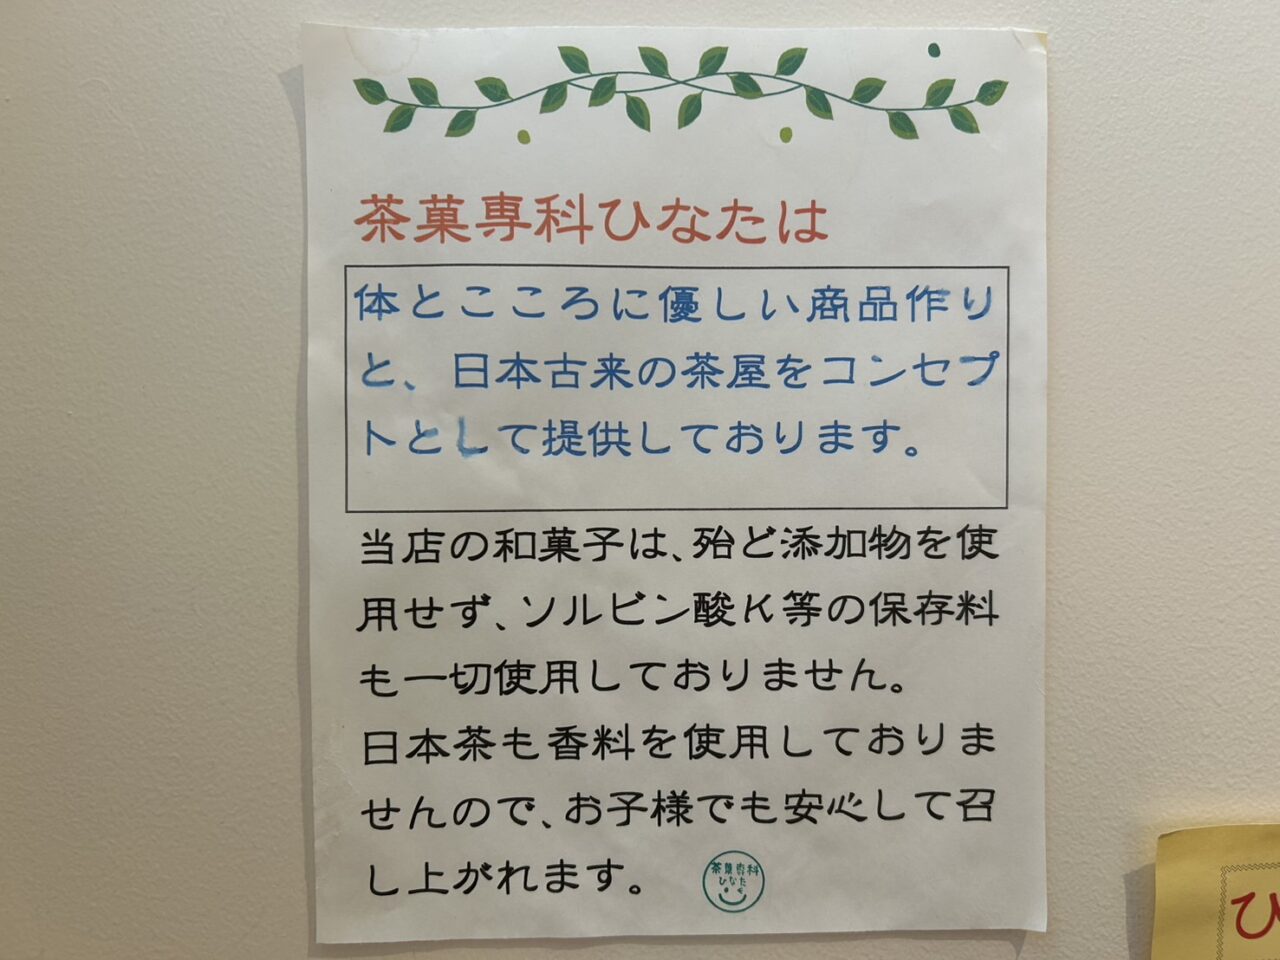 茶菓専科ひなたは
体とこころに優しい商品作り
と、日本古来の茶屋をコンセプ
トとして提供しております。
当店の和菓子は、殆ど添加物を使
用せず、ソルビン酸K等の保存料
も一切使用しておりません。
日本茶も香料を使用しておりま
せんので、お子様でも安心して召
し上がれます。
茶菓専科
ひなた
ひ